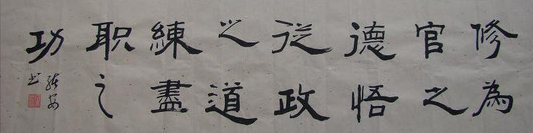 修為
官之
德悟
從政
之道
練盡
职之
功
书